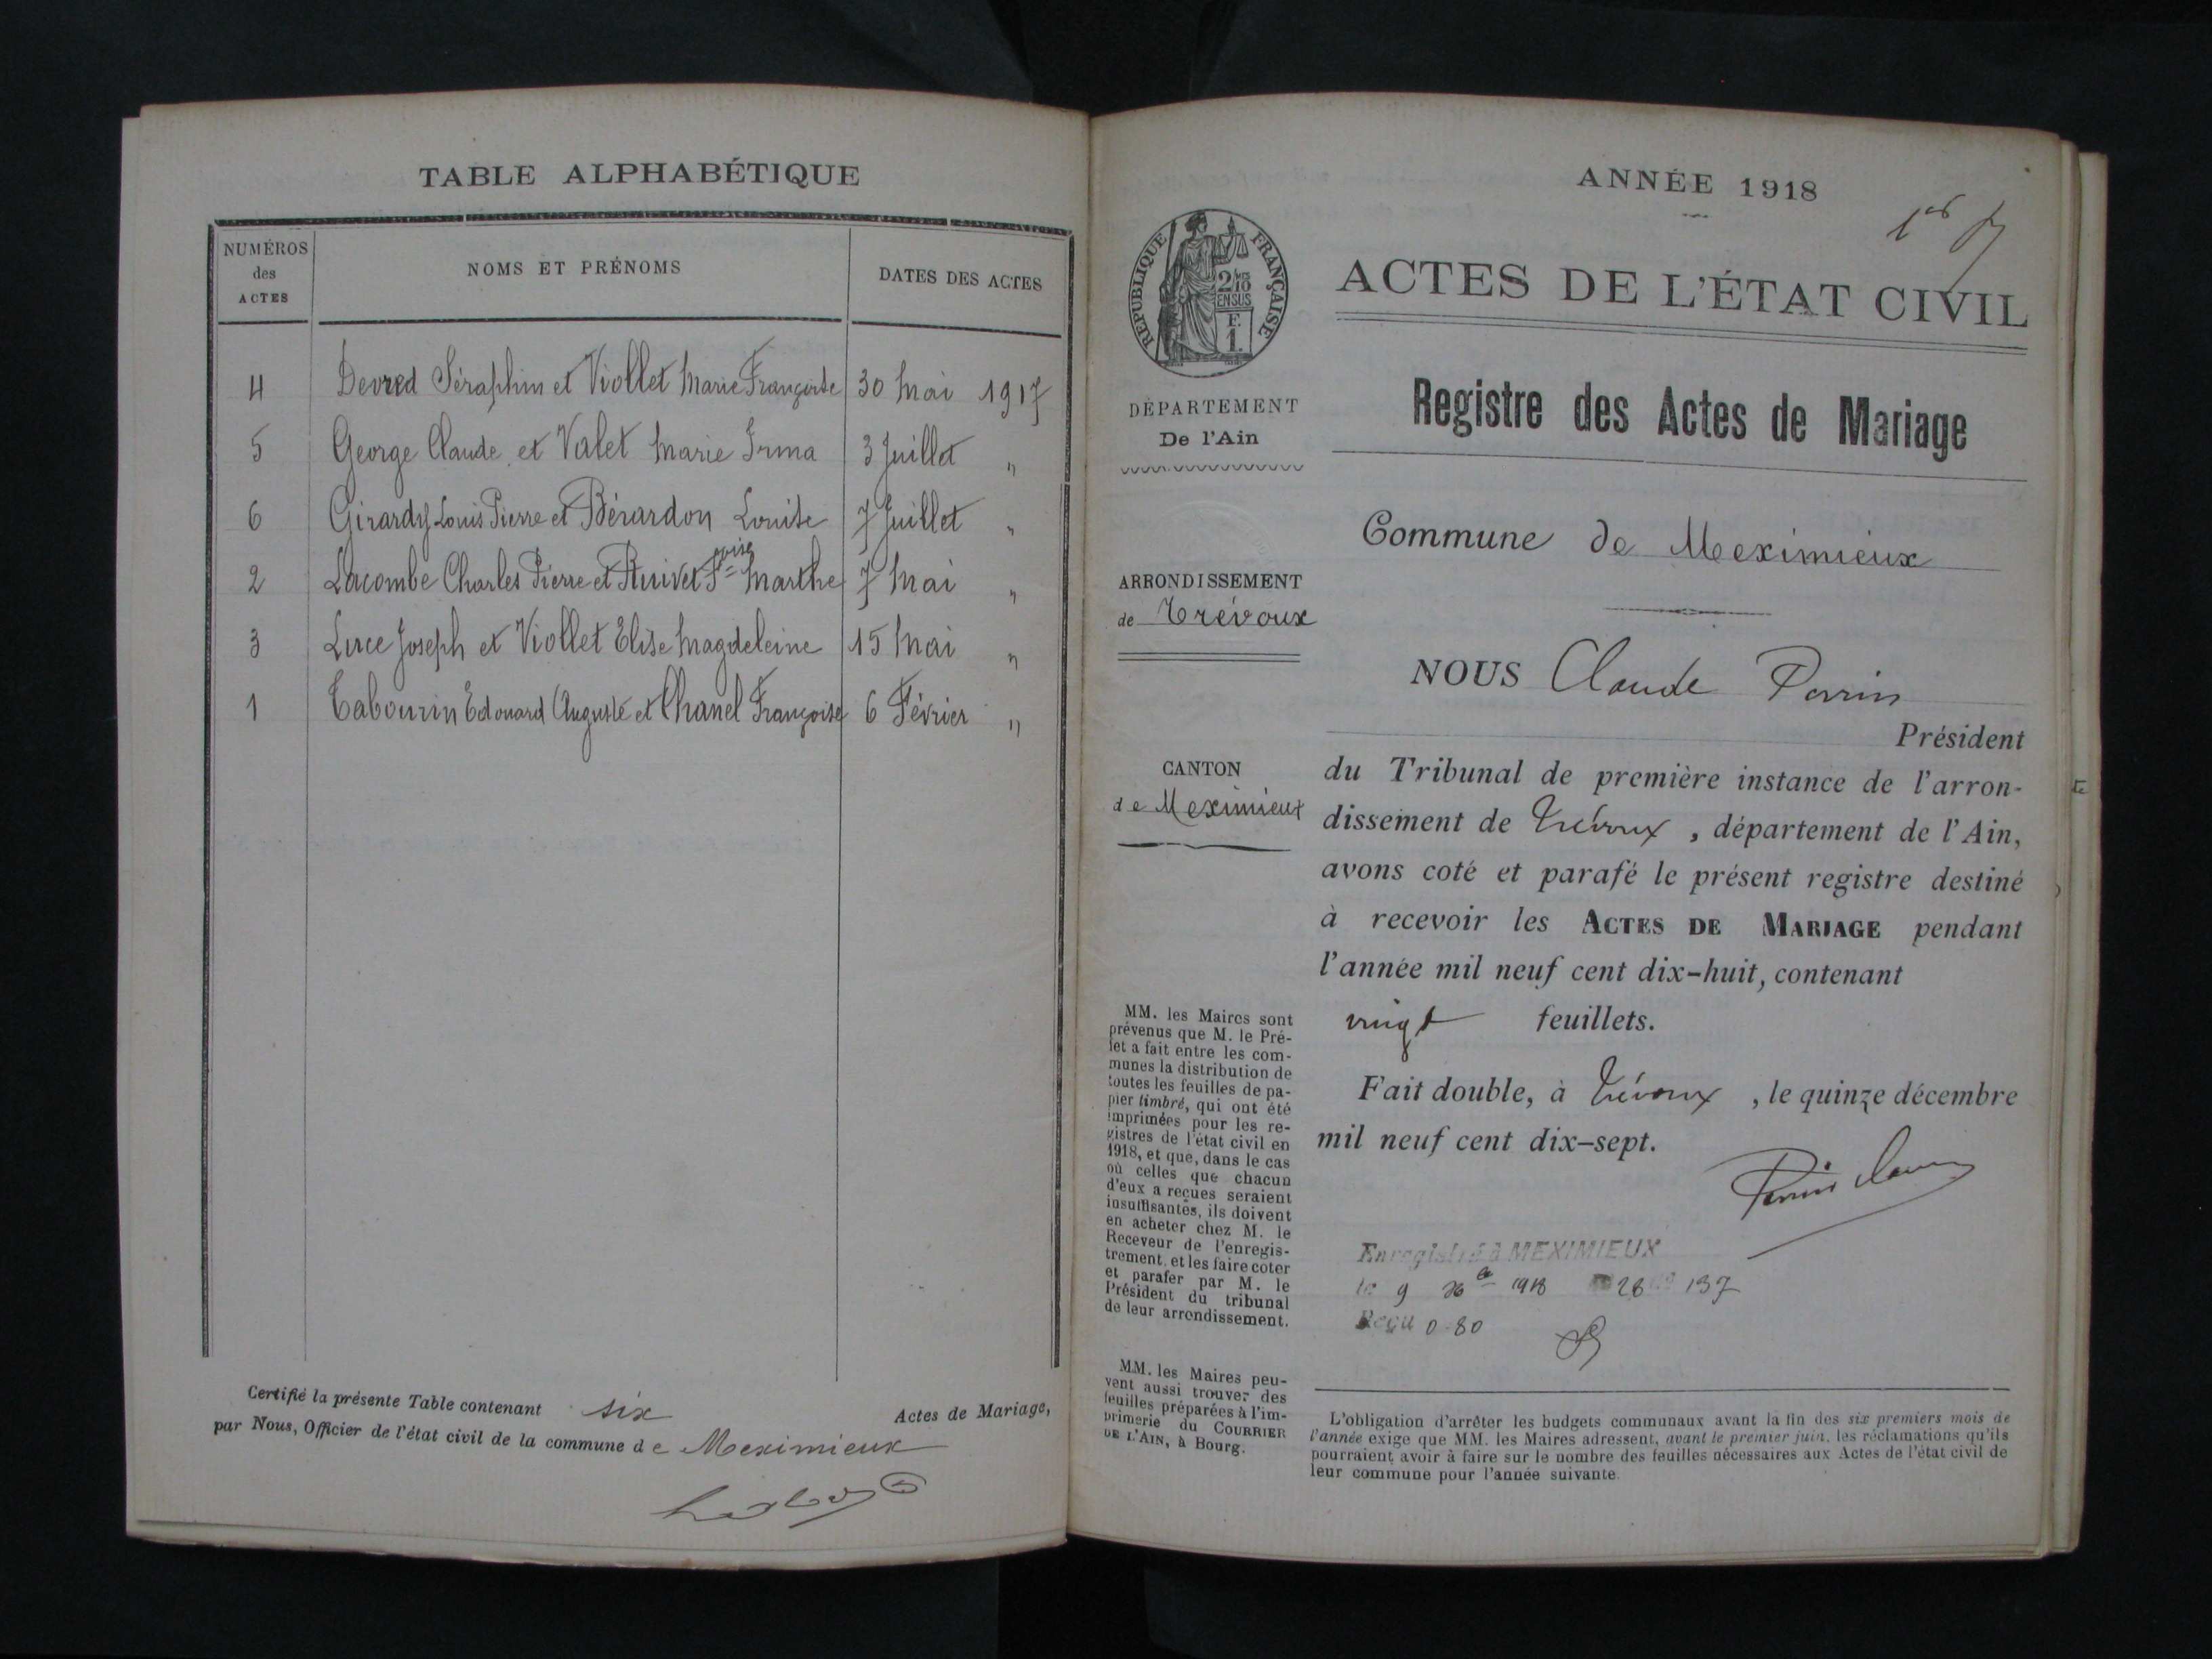 TABLE ALPHABÉTIQUE
NUMÉROS
des
ACTES
NOMS ET PRÉNOMS
DATES DES ACTES
4 Devred Séraphin et Viollet Marie Françoise 30 Mai 1917
5 George Claude et Valet Marie Irma 3 Juillet "
6 Girardy Louis Pierre et Bérardon Louise 7 Juillet "
2 Lacombe Charles Pierre et Ruivet Fçoise Marthe 7 Mai "
3 Luce Joseph et Viollet Elise Magdeleine 15 Mai "
1 Tabourin Edouard Auguste et Chanel Françoise 6 Février "
Certifié la présente Table contenant six Actes de Mariage,
par Nous, Officier de l'état civil de la commune de Meximieux
ANNÉE 1918
RÉPUBLIQUE FRANÇAISE
2/10
EN SUS
F.
1.
DÉPARTEMENT
De l'Ain
ARRONDISSEMENT
de Trévoux
CANTON
de Meximieux
MM. les Maires sont
prévenus que M. le Pré-
fet a fait entre les com-
munes la distribution de
toutes les feuilles de pa-
pier timbré, qui ont été
imprimées pour les re-
gistres de l'état civil en
1918, et que, dans le cas
où celles que chacun
d'eux a reçues seraient
insuffisantes, ils doivent
en acheter chez M. le
Receveur de l'enregis-
trement, et les faire coter
et parafer par M. le
Président du tribunal
de leur arrondissement.
MM. les Maires peu-
vent aussi trouver des
feuilles préparées à l'im-
primerie du COURRIER
DE L'AIN, à Bourg.
ACTES DE L'ÉTAT CIVIL
Registre des Actes de Mariage
Commune de Meximieux
NOUS Claude Perrin
Président
du Tribunal de première instance de l'arron-
dissement de Trévoux, département de l'Ain,
avons coté et parafé le présent registre destiné
à recevoir les ACTES DE MARIAGE pendant
l'année mil neuf cent dix-huit, contenant
vingt feuillets.
Fait double, à Trévoux, le quinze décembre
mil neuf cent dix-sept.
Enregistré à MEXIMIEUX
le 9 1918 28 137
Reçu 0-80
L'obligation d'arrêter les budgets communaux avant la fin des six premiers mois de
l'année exige que MM. les Maires adressent, avant le premier juin, les réclamations qu'ils
pourraient avoir à faire sur le nombre des feuilles nécessaires aux Actes de l'état civil de
leur commune pour l'année suivante.